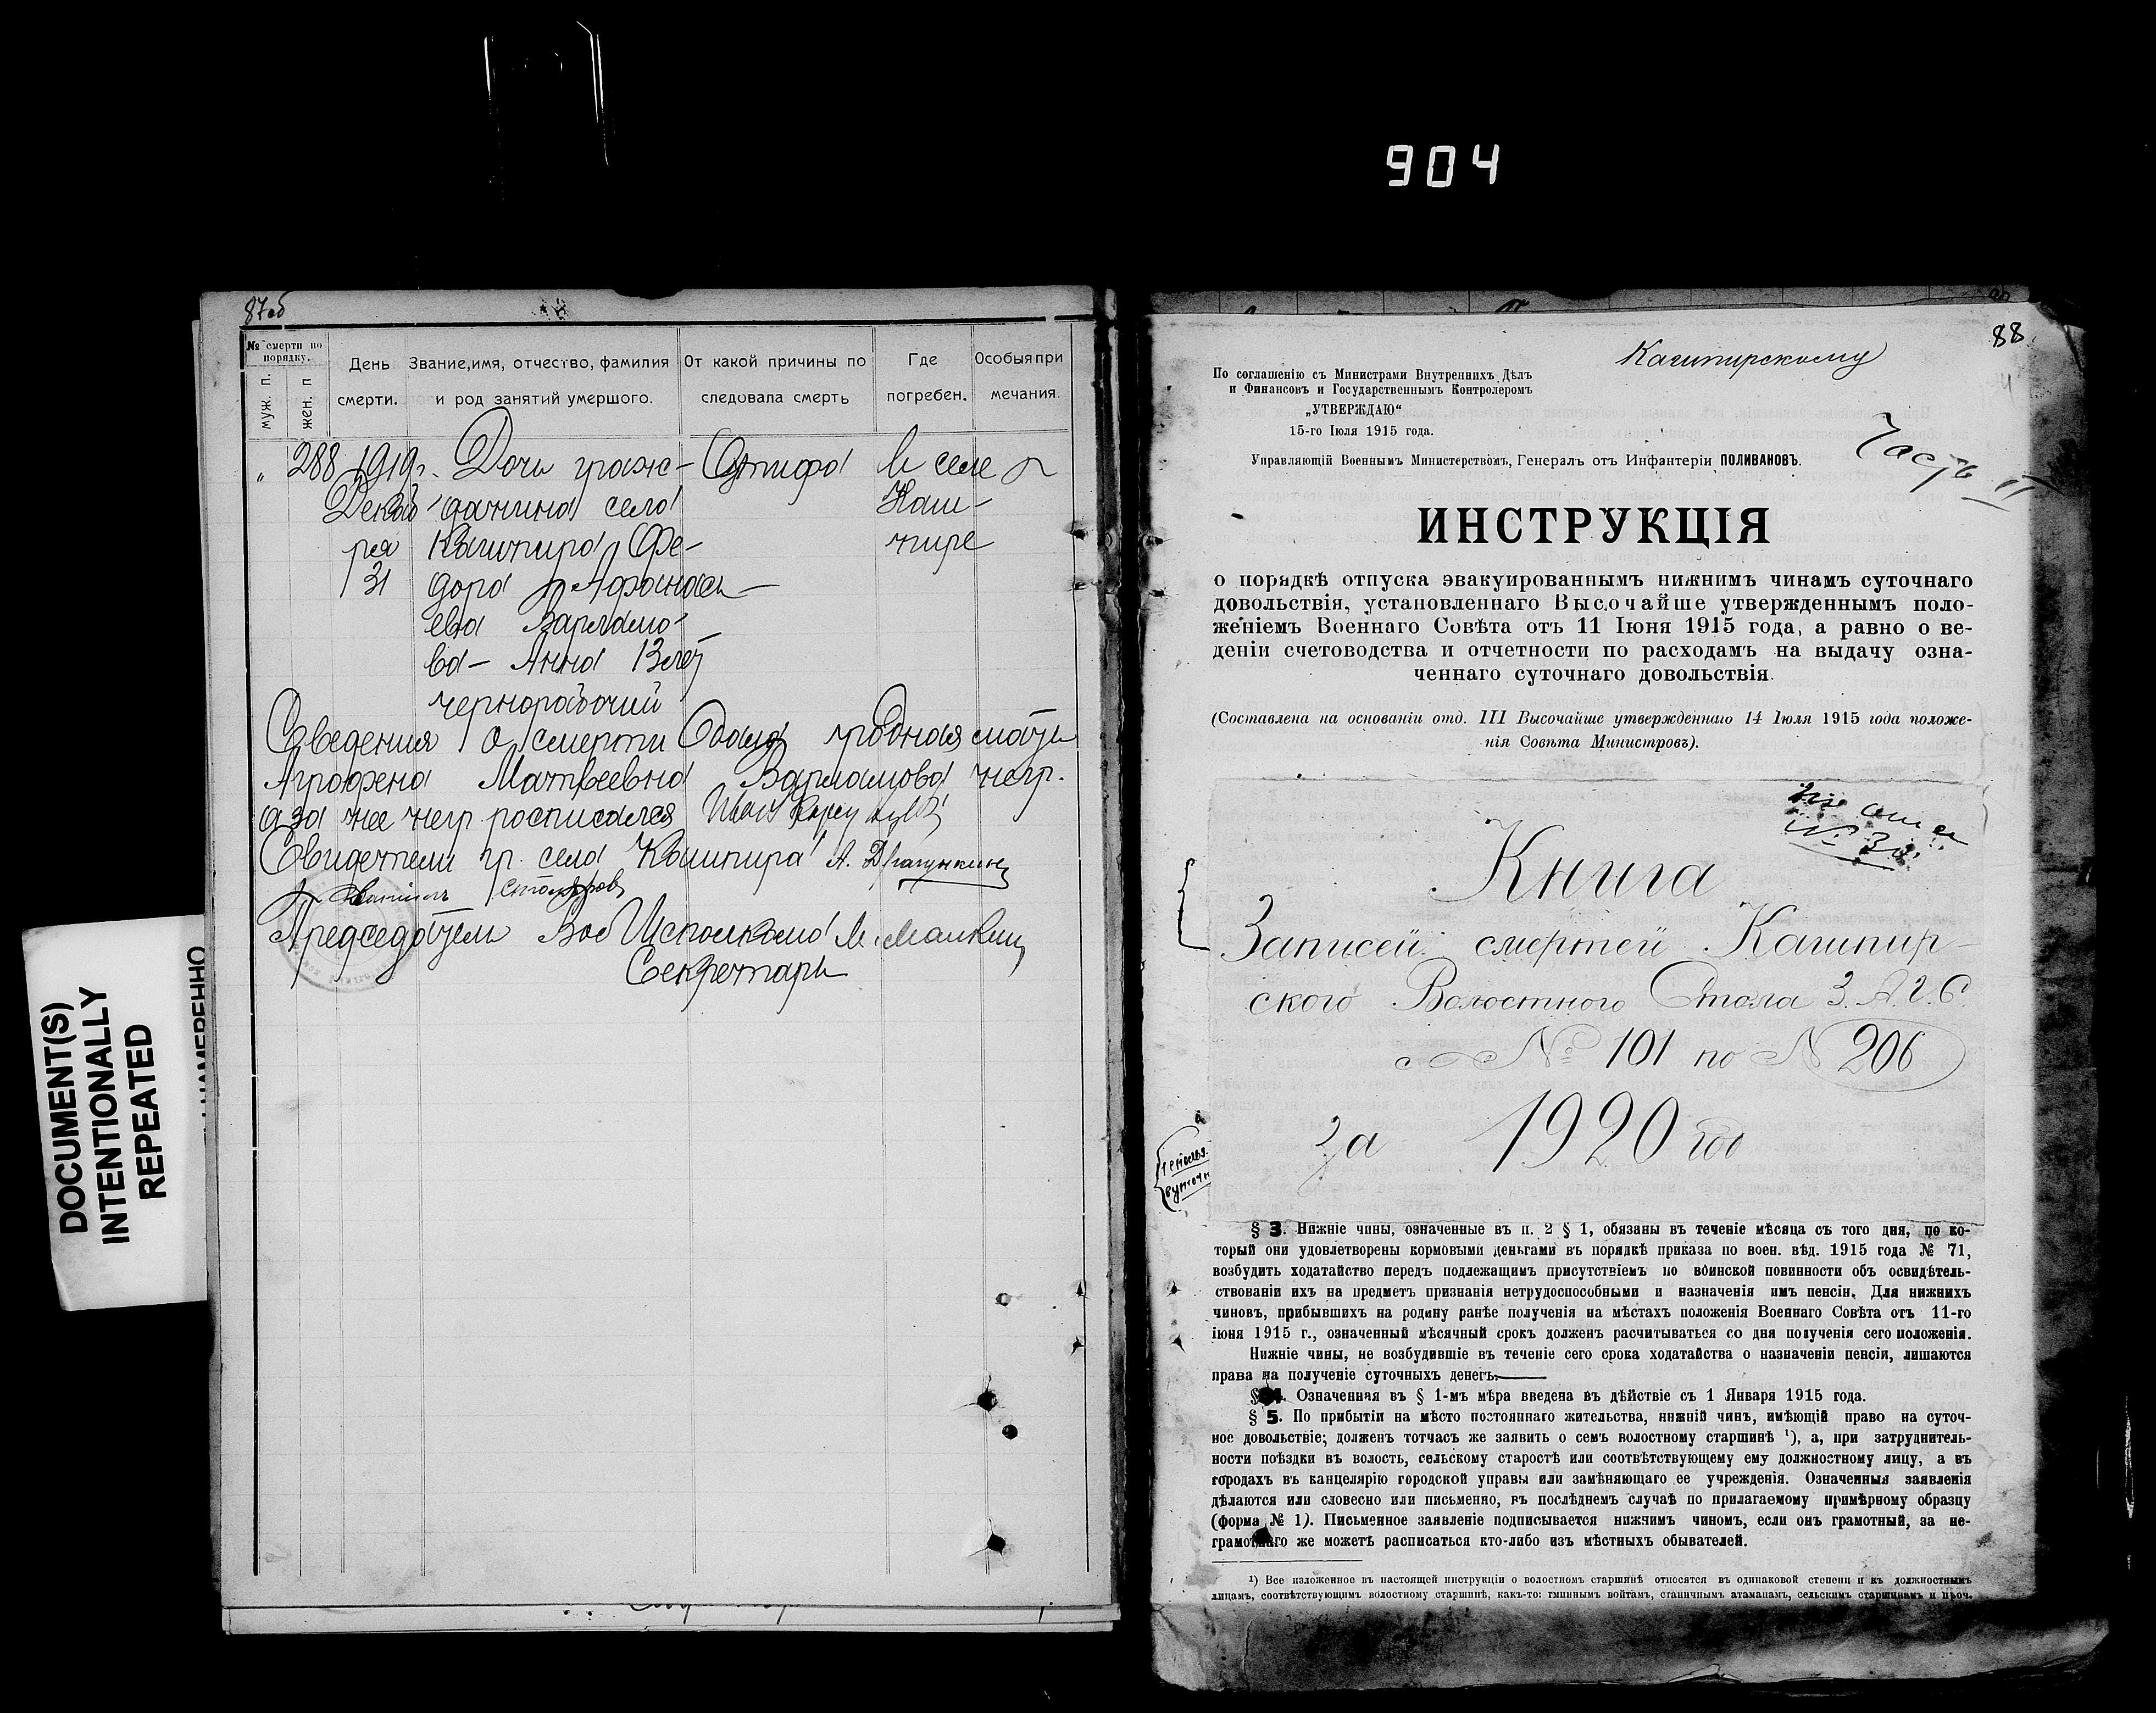 904
DOCUMENT(S)
INTENTIONALLY
REPEATED
87об
№ смерти по порядку.
муж. п.
жен. п
День смерти.
Звание,имя, отчество, фамилия и род занятий умершого.
От какой причины последовала смерть
Где погребен.
Особыя примечания.
" 288 1919г. Дочь граж- От тифа В селе
Декаб- данина села Каш-
ря Кашпира Фе- пире
31 дора Афанась-
ева Варламо-
ва - Анна 13 лет
чернорабочий
Сведения о смерти дала родная мать
Аграфена Матвеевна Варламова негр.
а за нее негр росписался Иван
Свидетели гр. села Кашпира А. Драгункин
Председатель Вол Исполкома М. Малкин
Секретарь
88
Кашпирскому
Часть II
По соглашенію съ Министрами Внутреннихъ Дѣлъ
и Финансовъ и Государственнымъ Контролеромъ
„УТВЕРЖДАЮ“
15-го Іюля 1915 года.
Управляющій Военнымъ Министерствомъ, Генералъ отъ Инфантеріи ПОЛИВАНОВЪ.
ИНСТРУКЦІЯ
о порядкѣ отпуска эвакуированнымъ нижнимъ чинамъ суточнаго
довольствія, установленнаго Высочайше утвержденнымъ поло-
женіемъ Военнаго Совѣта отъ 11 Іюня 1915 года, а равно о ве-
деніи счетоводства и отчетности по расходамъ на выдачу озна-
ченнаго суточнаго довольствія.
(Составлена на основаніи отд. III Высочайше утвержденнаго 14 Іюля 1915 года положе-
нія Совѣта Министровъ).
Книга
Записей смертей Кашпир-
ского Волостного Стола З.А.Г.С.
с № 101 по № 206
за 1920 год
§ 3. Нижніе чины, означенные въ п. 2 § 1, обязаны въ теченіе мѣсяца съ того дня, по ко-
торый они удовлетворены кормовыми деньгами въ порядкѣ приказа по воен. вѣд. 1915 года № 71,
возбудить ходатайство передъ подлежащимъ присутствіемъ по воинской повинности объ освидѣтель-
ствованіи ихъ на предметъ признанія нетрудоспособными и назначенія имъ пенсіи. Для нижнихъ
чиновъ, прибывшихъ на родину ранѣе полученія на мѣстахъ положенія Военнаго Совѣта отъ 11-го
іюня 1915 г., означенный мѣсячный срокъ долженъ расчитываться со дня полученія сего положенія.
Нижніе чины, не возбудившіе въ теченіе сего срока ходатайства о назначеніи пенсіи, лишаются
права на полученіе суточныхъ денегъ.
§ 4. Означенная въ § 1-мъ мѣра введена въ дѣйствіе съ 1 Января 1915 года.
§ 5. По прибытіи на мѣсто постояннаго жительства, нижній чинъ, имѣющій право на суточ-
ное довольствіе; долженъ тотчасъ же заявить о семъ волостному старшинѣ ¹), а, при затруднитель-
ности поѣздки въ волость, сельскому старостѣ или соотвѣтствующему ему должностному лицу, а въ
городахъ въ канцелярію городской управы или замѣняющаго ее учрежденія. Означенныя заявленія
дѣлаются или словесно или письменно, въ послѣднемъ случаѣ по прилагаемому примѣрному образцу
(форма № 1). Письменное заявленіе подписывается нижнимъ чиномъ, если онъ грамотный, за не-
грамотнаго же можетъ расписаться кто-либо изъ мѣстныхъ обывателей.
¹) Все изложенное въ настоящей инструкціи о волостномъ старшинѣ относятся въ одинаковой степени и къ должностнымъ
лицамъ, соотвѣтствующимъ волостному старшинѣ, какъ-то: гминнымъ войтамъ, станичнымъ атаманамъ, сельскимъ старшинамъ и проч.